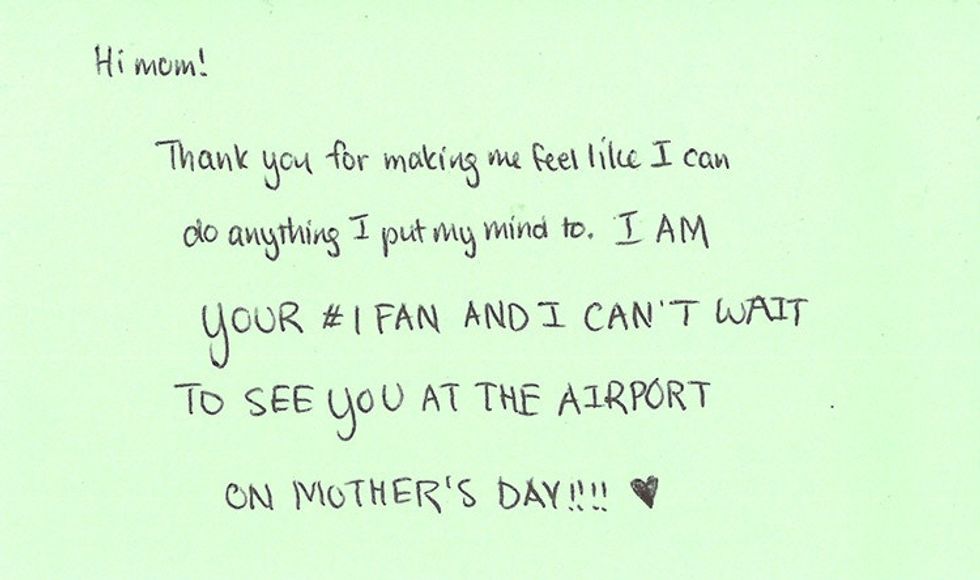 Hi mom!
Thank you for making me feel like I can
do anything I put my mind to. I AM
YOUR #1 FAN AND I CAN'T WAIT
TO SEE YOU AT THE AIRPORT
ON MOTHER'S DAY!!!! ♥